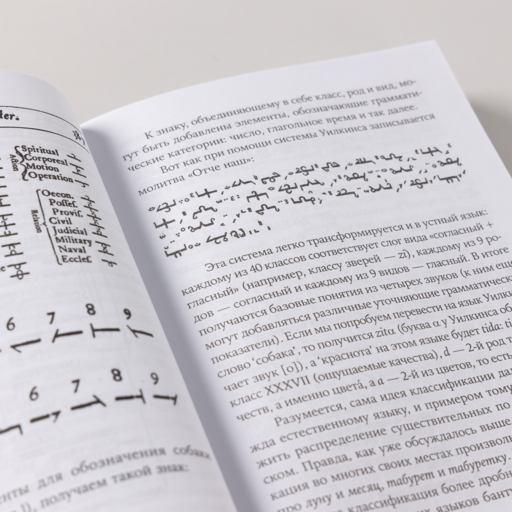 der.
Spiritual
Corporeal
Motion
Operation
Action
Oecon.
Posses.
Provis.
Civil
Judicial
Military
Naval
Eccles.
Relation
6 7 8 9
6 7 8 9
енты для обозначения собак
), получаем такой знак:
К знаку, объединяющему в себе класс, род и вид, мо-
гут быть добавлены элементы, обозначающие граммати-
ческие категории: число, глагольное время и так далее.
Вот как при помощи системы Уилкинса записывается
молитва «Отче наш»:
Эта система легко трансформируется и в устный язык:
каждому из 40 классов соответствует слог вида «согласный +
гласный» (например, классу зверей — zi), каждому из 9 ро-
дов — согласный и каждому из 9 видов — гласный. В итоге
получаются базовые понятия из четырех звуков (к ним еще
могут добавляться различные уточняющие грамматические
показатели). Если мы попробуем перевести на язык Уилки
слово ‘собака’, то получится zitα (буква α у Уилкинса об
чает звук [о]), а ‘краснота’ на этом языке будет tida: ti
класс XXXVII (ощущаемые качества), d — 2-й род т
честв, а именно цвета́, а a — 2-й из цветов, то есть
Разумеется, сама идея классификации да
жда естественному языку, и примером тому
жить распределение существительных по
ском. Правда, как уже обсуждалось выше
кация во многих своих местах произволь
про луну и месяц, табурет и табуретку.
классификация более дробн
языков банту